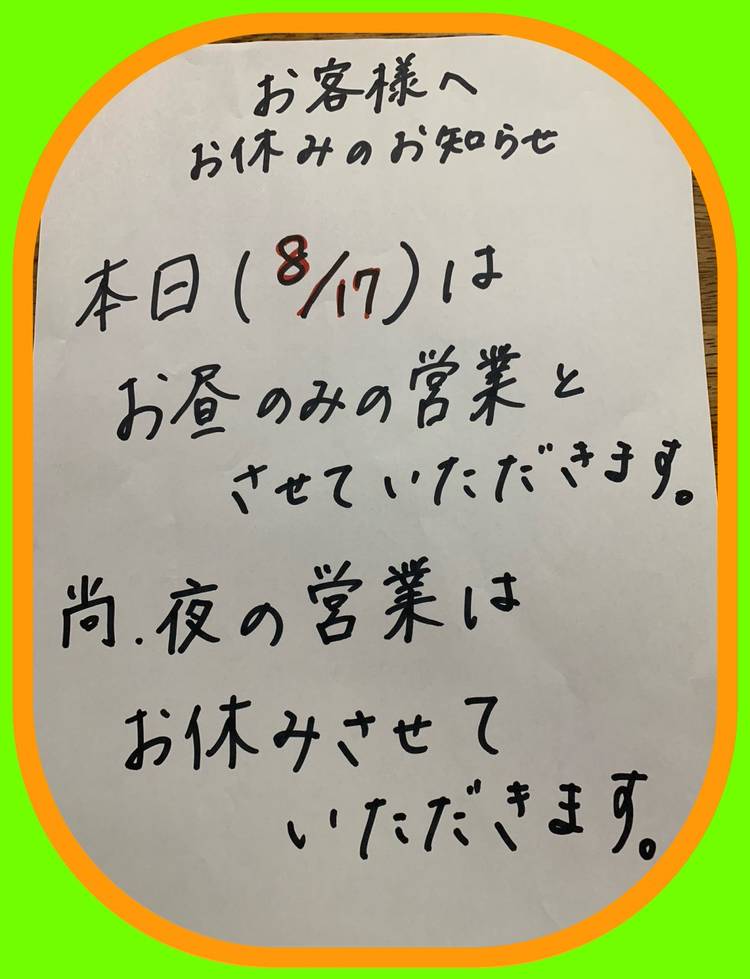 お客様へ
お休みのお知らせ
本日(8/17)は
お昼のみの営業と
させていただきます。
尚.夜の営業は
お休みさせて
いただきます。